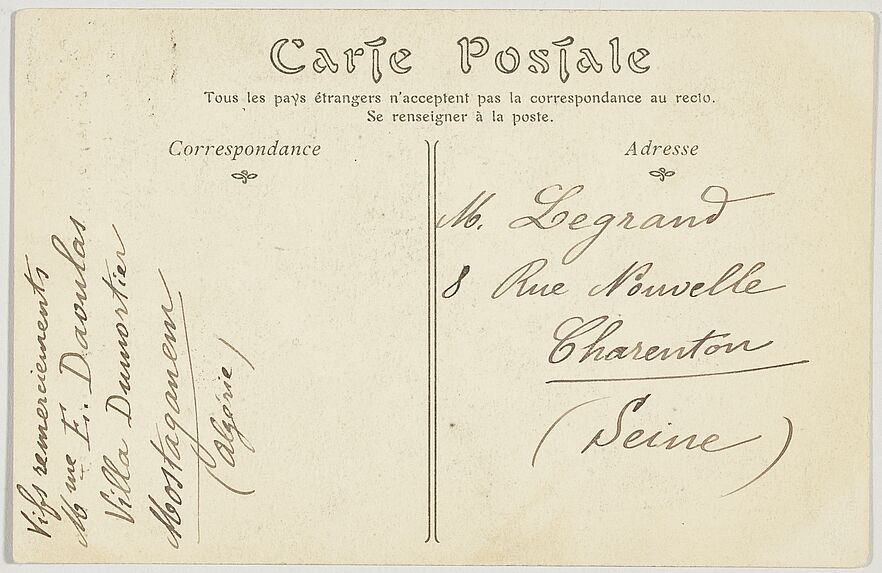 Carte Postale
Tous les pays étrangers n'acceptent pas la correspondance au recto.
Se renseigner à la poste.
Correspondance
Vifs remerciements
Mme E. Daoulas
Villa Dumortier
Mostaganem
(Algérie)
Adresse
M. Legrand
8 Rue Nouvelle
Charenton
(Seine)